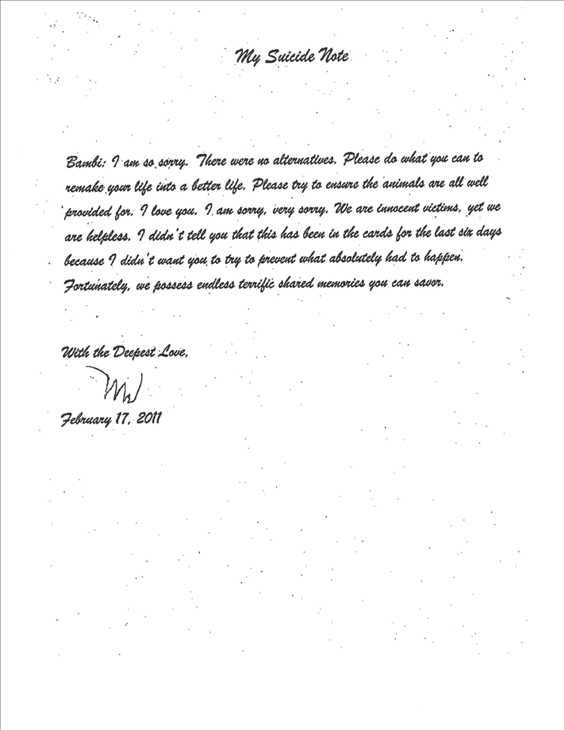 My Suicide Note
Bambi: I am so sorry. There were no alternatives. Please do what you can to
remake your life into a better life. Please try to ensure the animals are all well
provided for. I love you. I am sorry, very sorry. We are innocent victims, yet we
are helpless. I didn't tell you that this has been in the cards for the last six days
because I didn't want you to try to prevent what absolutely had to happen.
Fortunately, we possess endless terrific shared memories you can savor.
With the Deepest Love,
February 17, 2011